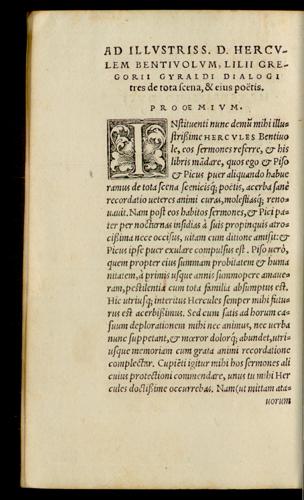 AD ILLVSTRISS. D. HERCV
LEM BENTIVOLVM, LILII GRE
GORII GYRALDI DIALOGI
tres de tota scena, & eius poëtis.
PROOEMIVM.
INstituenti nunc demũ mihi illu
strißime HERCVLES Bentiuo
le, eos sermones referre, & his
libris mãdare, quos ego & Piso
& Picus puer aliquando habue
ramus de tota scena scenicisq; poëtis, acerba sanè
recordatio ueteres animi curas, molestiasq; reno-
uauit. Nam post eos habitos sermones, & Pici pa-
ter per nocturnas insidias à suis propinquis atro-
cißima nece occisus, uitam cum ditione amisit: &
Picus ipse puer exulare compulsus est. Piso uerò,
quem propter eius summam probitatem & huma
nitatem, à primis usque annis summopere amaue-
ram, pestilentia cum tota familia absumptus est.
Hic utriusq; interitus Hercules semper mihi futu-
rus est acerbißimus. Sed cum satis ad horum ca-
suum deplorationem mihi nec animus, nec uerba
nunc suppetant, & mœror dolorq; abundet, utri-
usque memoriam cum grata animi recordatione
complectar. Cupiẽti igitur mihi hos sermones ali
cuius protectioni commendare, unus tu mihi Her
cules doctißime occurrebas. Nam (ut mittam ata-
uorum